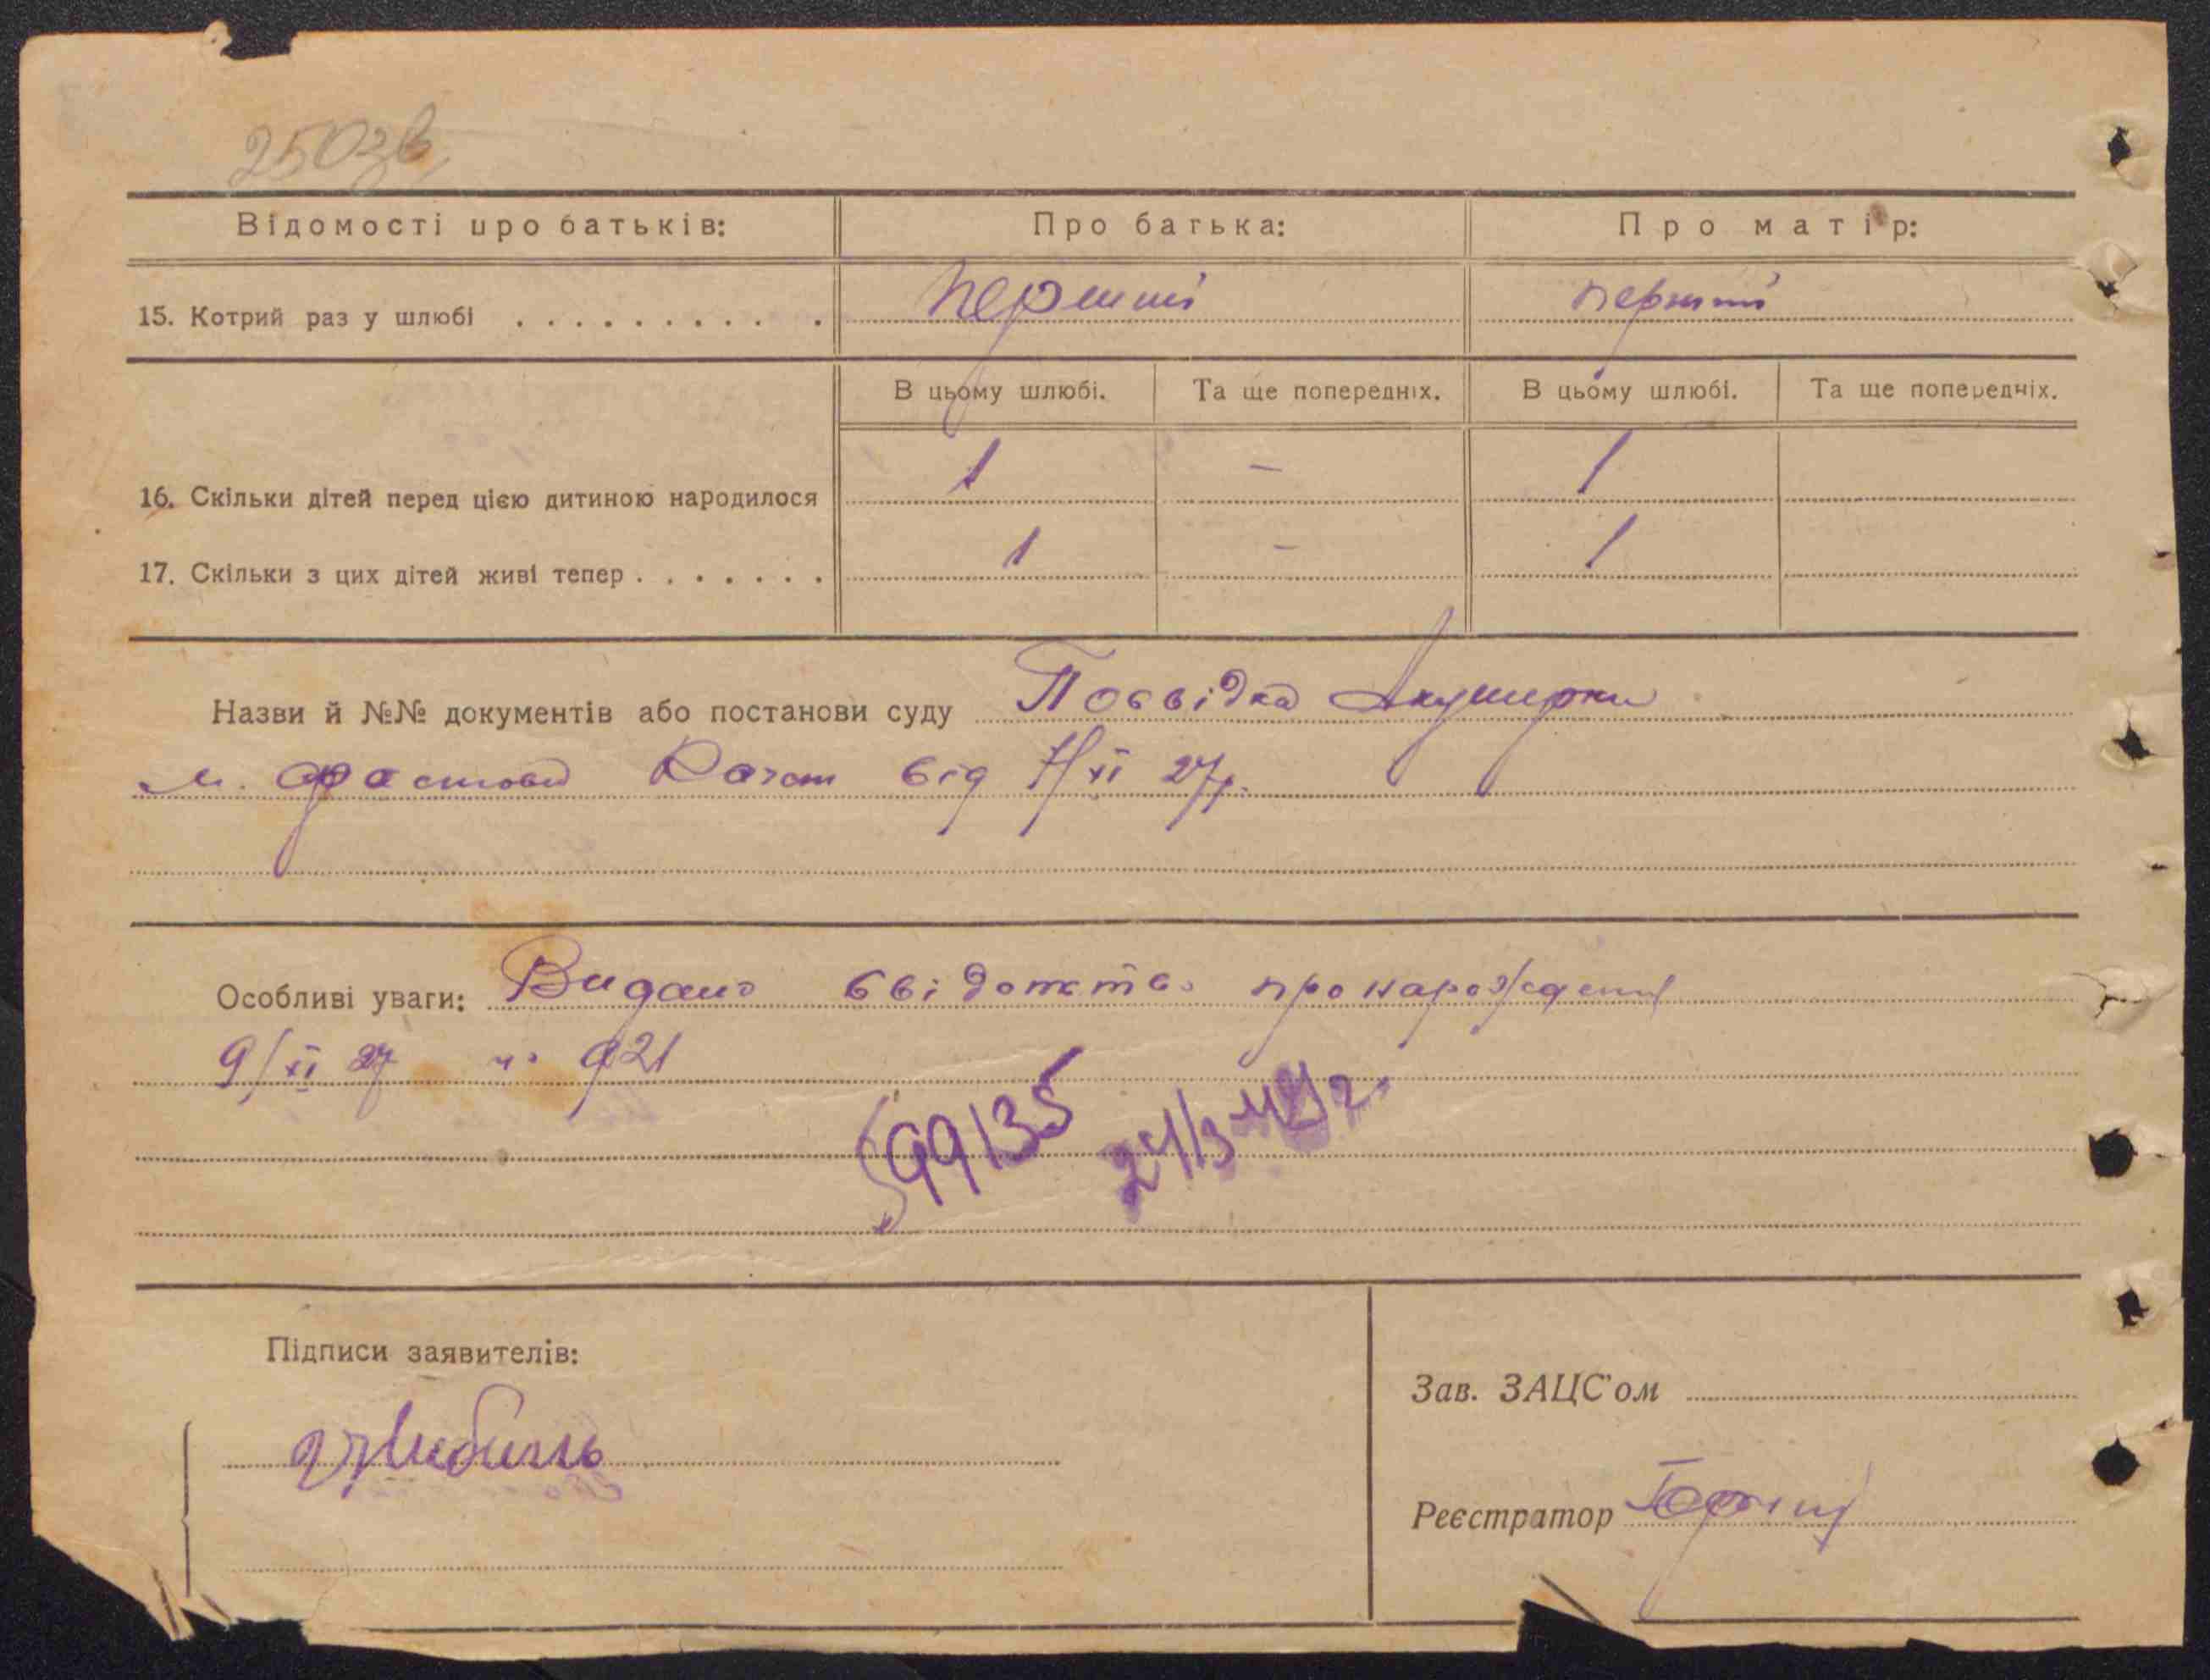 250зв
Відомості про батьків: Про батька: Про матір:
15. Котрий раз у шлюбі . . . . . . . . . . . перший перший
В цьому шлюбі. Та ще попередніх. В цьому шлюбі. Та ще попередніх.
16. Скільки дітей перед цією дитиною народилося 1 – 1
17. Скільки з цих дітей живі тепер . . . . . . . 1 – 1
Назви й №№ документів або постанови суду Посвідка Акушерки
м. Фастова від 7/XI 27р.
Особливі уваги: Видано свідоцтво про народження
9/XI 27 ч. 921
99135 24/3
Підписи заявителів:
Зав. ЗАЦС'ом
Реєстратор